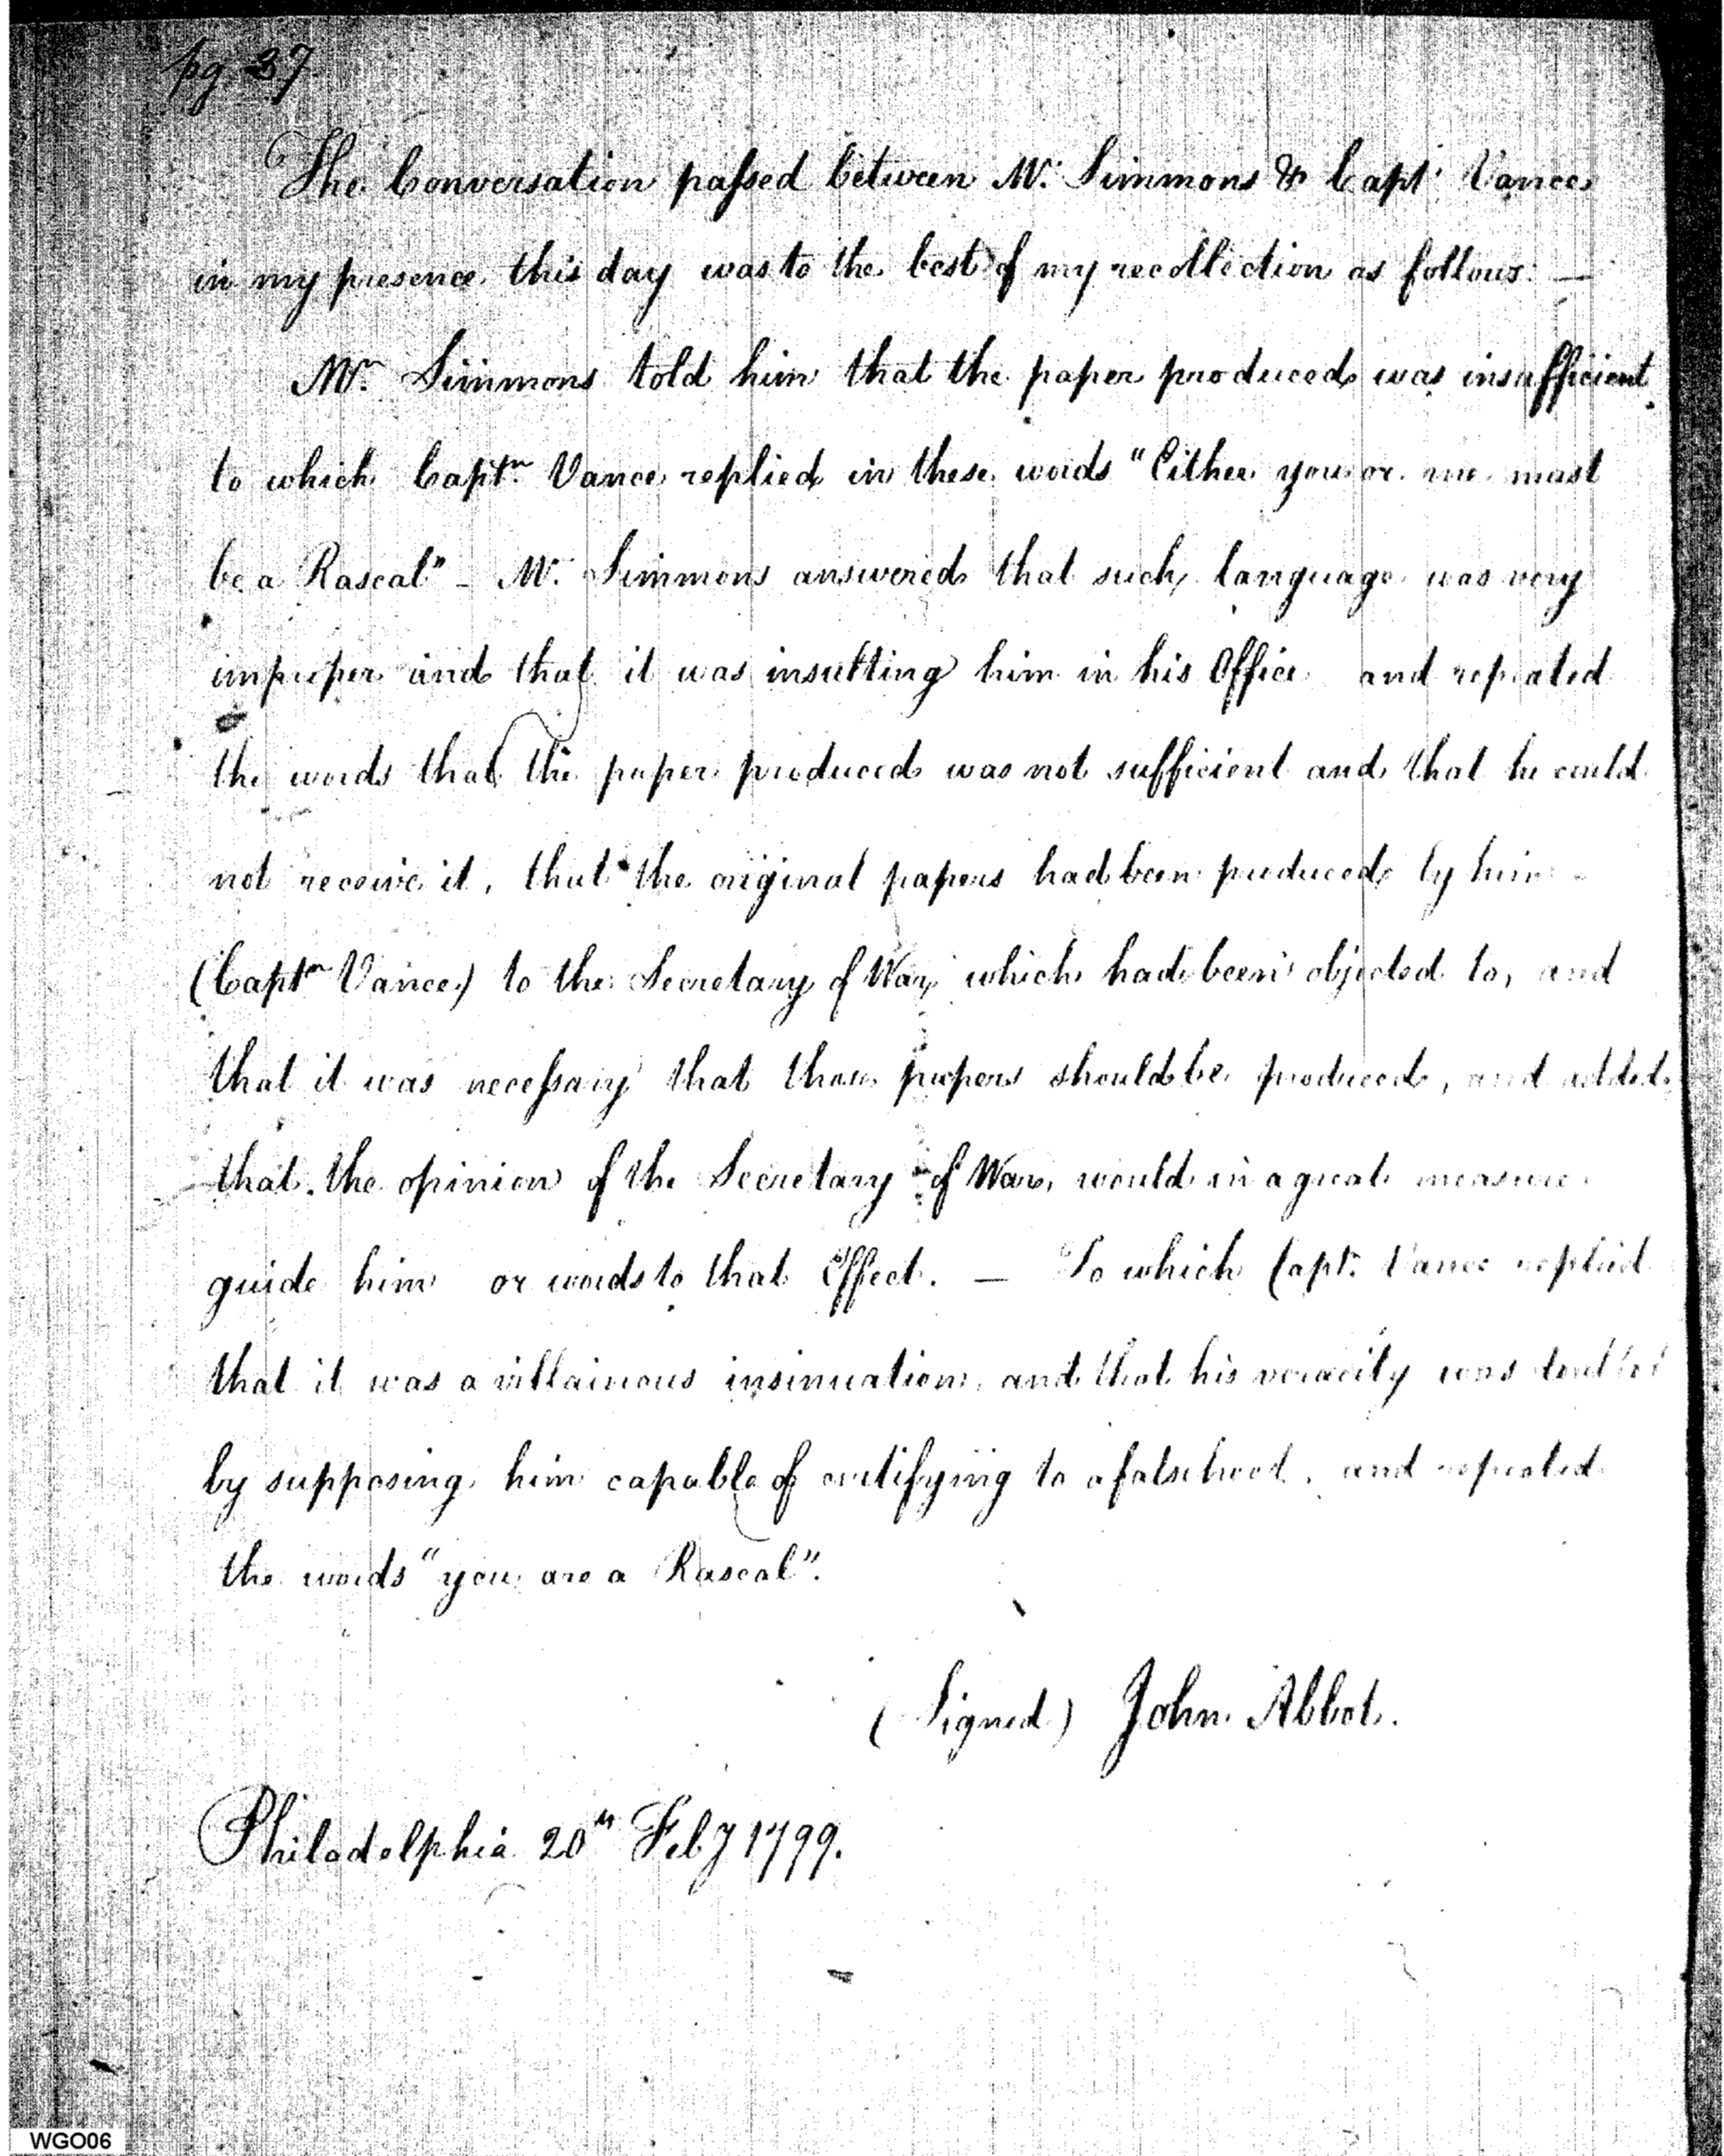 pg 37
The Conversation passed between Mr. Simmons & Capt. Vance
in my presence this day was to the best of my recollection as follows. —
Mr. Simmons told him that the paper produced was insufficient
to which Captn. Vance replied in these words "Either you or me must
be a Rascal" – Mr. Simmons answered that such language was very
improper and that it was insulting him in his Office and repeated
the words that the paper produced was not sufficient and that he could
not receive it, that the original papers had been produced by him –
(Captn Vance) to the Secretary of War, which had been objected to, and
that it was necessary that those papers should be produced, and added
that the opinion of the Secretary of War, would in a great measure
guide him or words to that Effect. — To which Capt. Vance replied
that it was a villainous insinuation, and that his veracity was doubted
by supposing him capable of certifying to a falsehood, and repeated
the words "you are a Rascal".
(Signed) John Abbot.
Philadelphia 20th Feby 1799.
WGO06